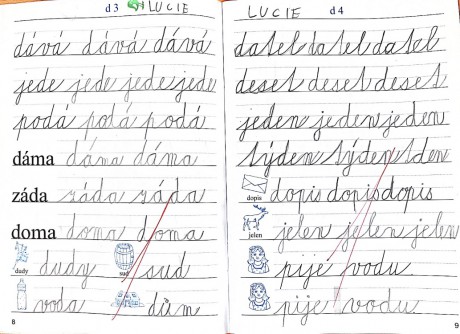 d 3 LUCIE
dává dává dává
jede jede jede jede
podá podá podá
dáma dáma dáma
záda záda záda
doma doma doma
dudy dudy sud sud
voda dům
8
LUCIE d 4
datel datel datel
deset deset deset
jeden jeden jeden
týden týden tden
dopis dopis dopis dopis
jelen jelen jelen jelen
pije vodu.
pije vodu.
9